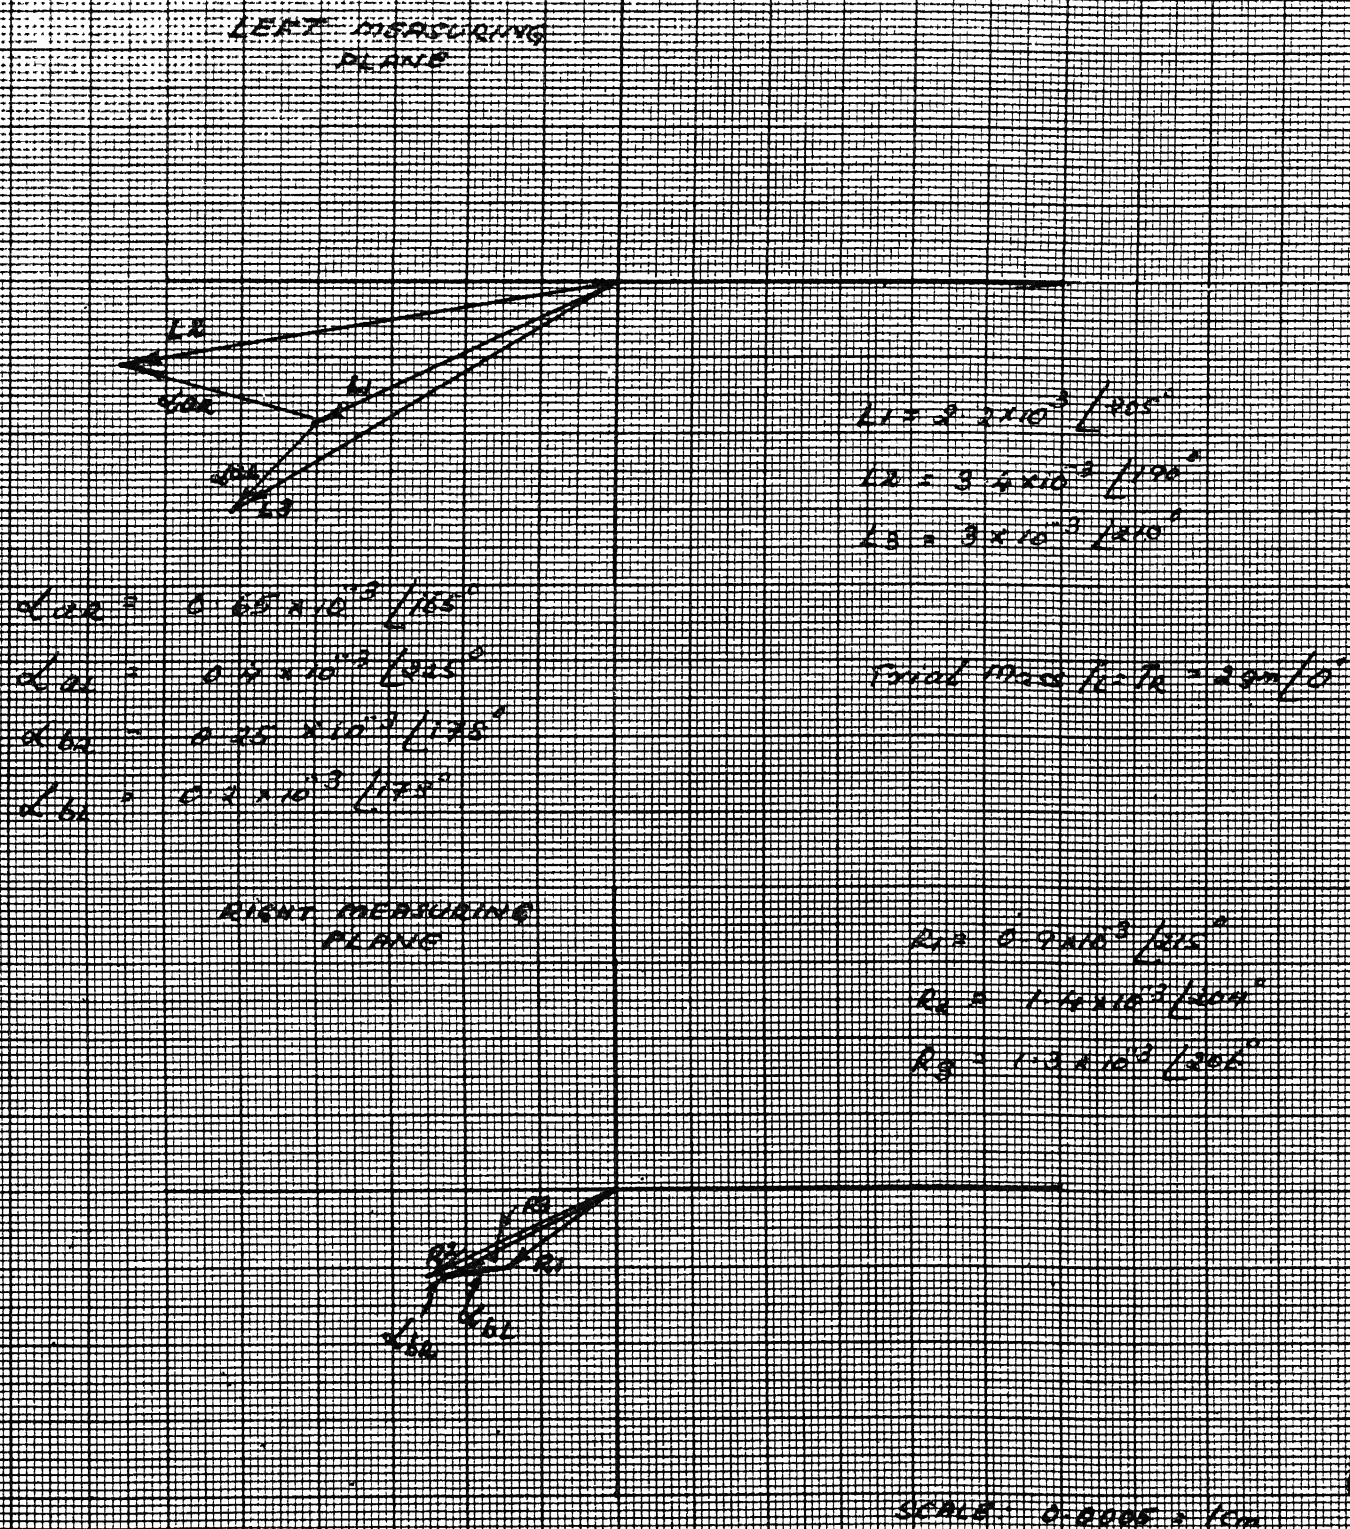 LEFT MEASURING
PLANE
L2
L1
αaR
αaL
L3
L1 = 2.2×10⁻³ ∠205°
L2 = 3.4×10⁻³ ∠190°
L3 = 3×10⁻³ ∠210°
αaR = 0.65×10⁻³ ∠165°
αaL = 0.4×10⁻³ ∠225°
Trial Mass TL=TR = 2gm ∠0°
αbR = 0.25×10⁻³ ∠175°
αbL = 0.2×10⁻³ ∠175°
RIGHT MEASURING
PLANE
R1 = 0.9×10⁻³ ∠215°
R2 = 1.4×10⁻³ ∠204°
R3 = 1.3×10⁻³
R3
R2
R1
αbL
αbR
SCALE: 0.0005 = 1cm